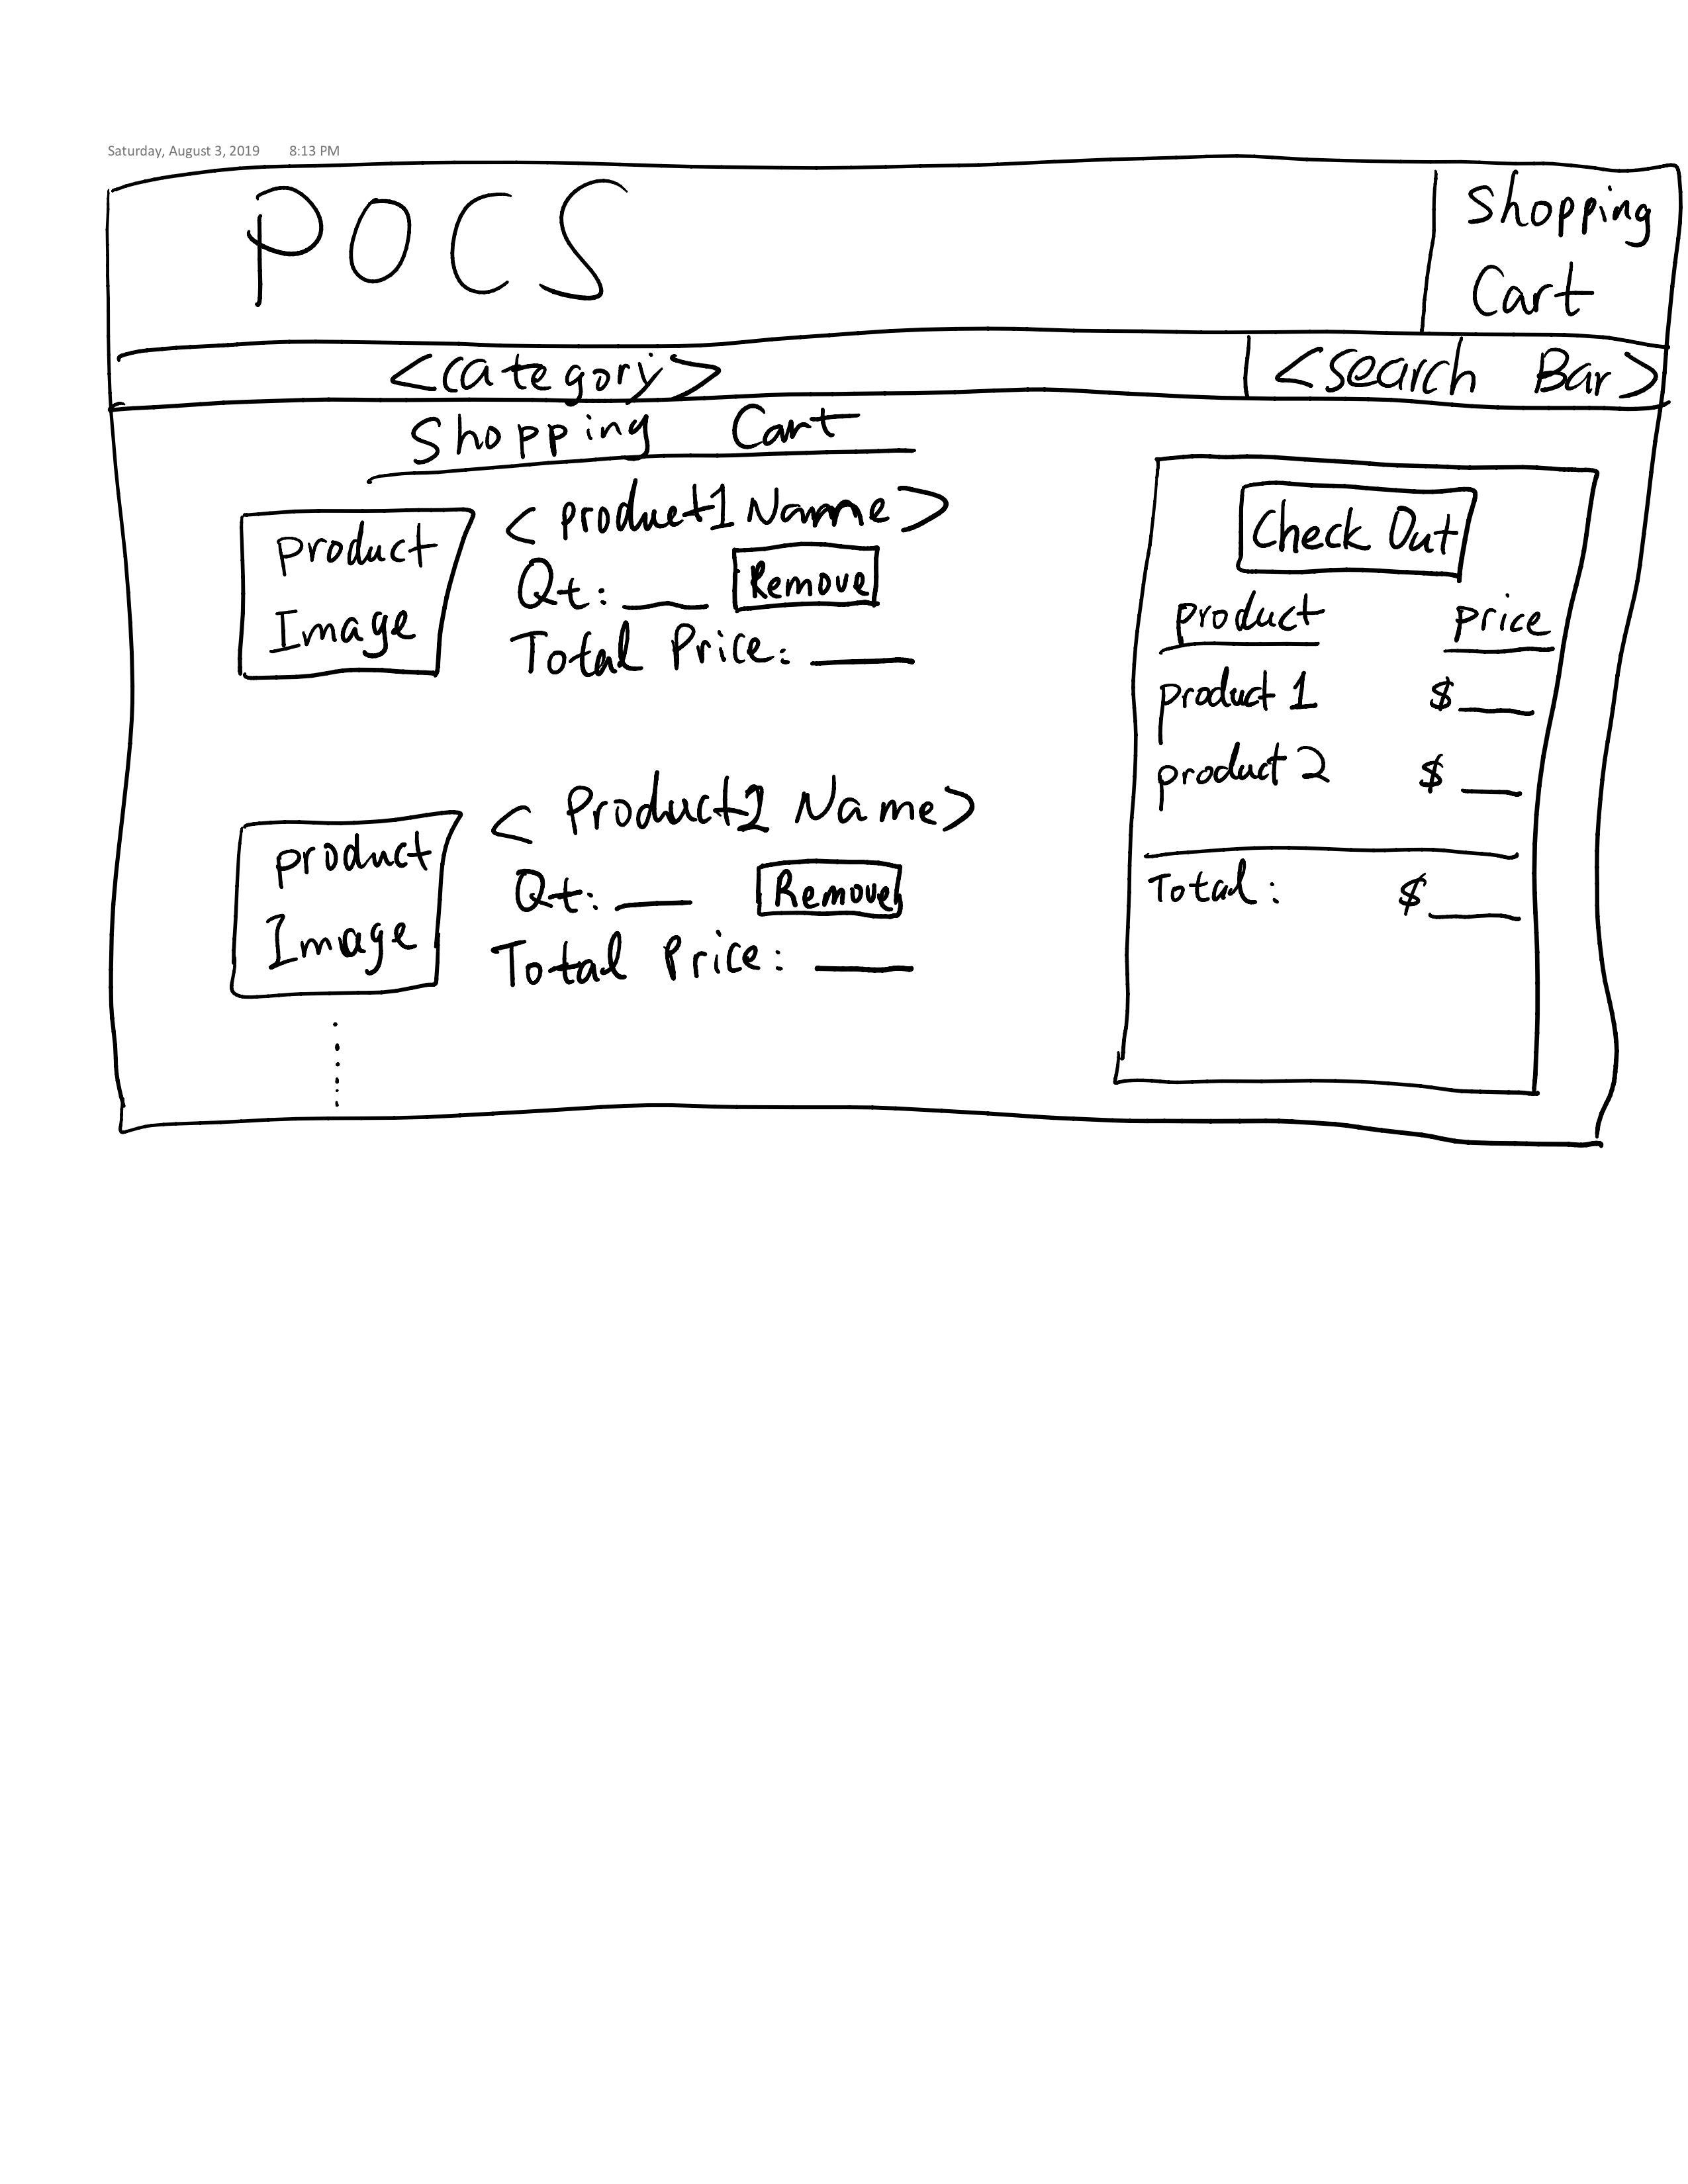 Saturday, August 3, 2019 8:13 PM
POCS
Shopping
Cart
<category>
<Search Bar>
Shopping Cart
product
Image
<product1 Name>
Qt: ___ Remove
Total Price: ___
product
Image
<Product2 Name>
Qt: ___ Remove
Total Price: ___
Check Out
product price
product 1 $___
product 2 $___
Total: $___